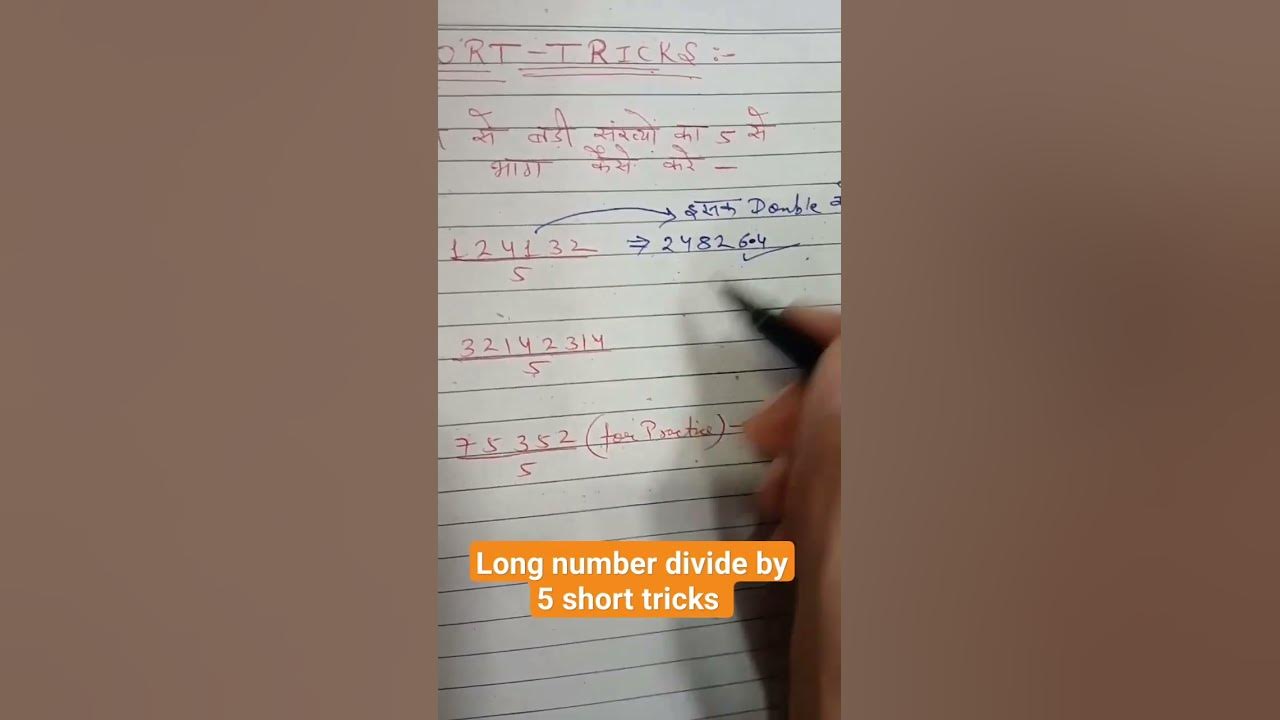 ORT-TRICKS :-
से बड़ी संख्यों का 5 से
भाग कैसे करे -
इसका Double
124132 ⇒ 24826.4
5
32142314
5
75352 (for Practice) -
5
Long number divide by
5 short tricks